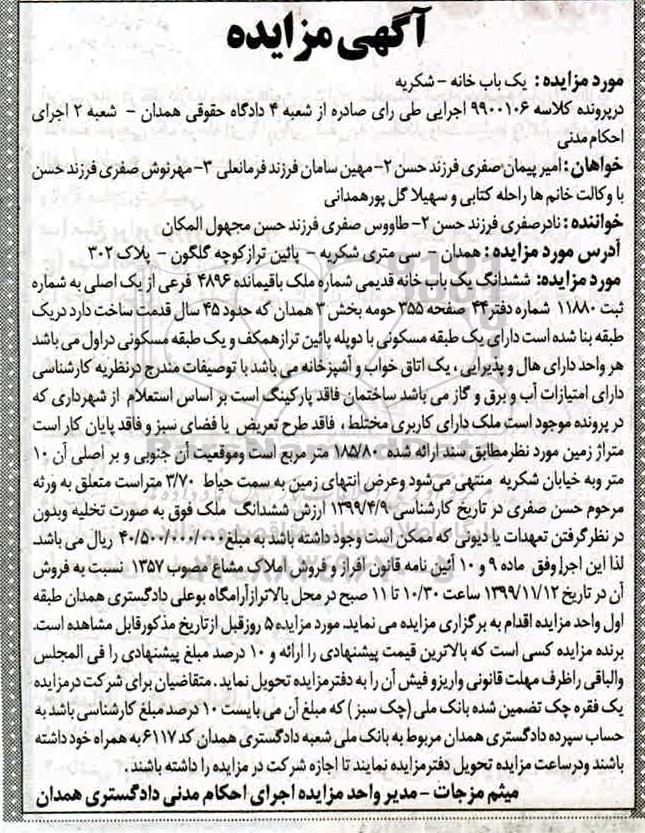 آگهی مزایده
مورد مزایده : یک باب خانه – شکریه
درپرونده کلاسه ۹۹۰۰۱۰۶ اجرایی طی رای صادره از شعبه ۴ دادگاه حقوقی همدان – شعبه ۲ اجرای
احکام مدنی
خواهان : امیر پیمان صفری فرزند حسن ۲- مهین سامان فرزند فرمانعلی ۳- مهرنوش صفری فرزند حسن
با وکالت خانم ها راحله کتابی و سهیلا گل پورهمدانی
خوانده : نادرصفری فرزند حسن ۲- طاووس صفری فرزند حسن مجهول المکان
آدرس مورد مزایده : همدان – سی متری شکریه – پائین ترازکوچه گلگون – پلاک ۳۰۲
مورد مزایده: ششدانگ یک باب خانه قدیمی شماره ملک باقیمانده ۴۸۹۶ فرعی از یک اصلی به شماره
ثبت ۱۱۸۸۰ شماره دفتر ۴۴ صفحه ۳۵۵ حومه بخش ۳ همدان که حدود ۴۵ سال قدمت ساخت دارد دریک
طبقه بنا شده است دارای یک طبقه مسکونی با دوپله پائین ترازهمکف و یک طبقه مسکونی دراول می باشد
هر واحد دارای هال و پذیرایی ، یک اتاق خواب و آشپزخانه می باشد با توصیفات مندرج درنظریه کارشناسی
دارای امتیازات آب و برق و گاز می باشد ساختمان فاقد پارکینگ است بر اساس استعلام از شهرداری که
در پرونده موجود است ملک دارای کاربری مختلط ، فاقد طرح تعریض یا فضای سبز و فاقد پایان کار است
متراژ زمین مورد نظرمطابق سند ارائه شده ۱۸۵/۸۰ متر مربع است وموقعیت آن جنوبی و بر اصلی آن ۱۰
متر وبه خیابان شکریه منتهی می‌شود وعرض انتهای زمین به سمت حیاط ۳/۷۰ متراست متعلق به ورثه
مرحوم حسن صفری در تاریخ کارشناسی ۱۳۹۹/۴/۹ ارزش ششدانگ ملک فوق به صورت تخلیه وبدون
در نظرگرفتن تعهدات یا دیونی که ممکن است وجود داشته باشد به مبلغ ۴۰/۵۰۰/۰۰۰/۰۰۰ ریال می باشد.
لذا این اجرا وفق ماده ۹ و ۱۰ آئین نامه قانون افراز و فروش املاک مشاع مصوب ۱۳۵۷ نسبت به فروش
آن در تاریخ ۱۳۹۹/۱۱/۱۲ ساعت ۱۰/۳۰ تا ۱۱ صبح در محل بالاترازآرامگاه بوعلی دادگستری همدان طبقه
اول واحد مزایده اقدام به برگزاری مزایده می نماید. مورد مزایده ۵ روزقبل ازتاریخ مذکورقابل مشاهده است.
برنده مزایده کسی است که بالاترین قیمت پیشنهادی را ارائه و ۱۰ درصد مبلغ پیشنهادی را فی المجلس
والباقی راظرف مهلت قانونی واریزو فیش آن را به دفترمزایده تحویل نماید . متقاضیان برای شرکت درمزایده
یک فقره چک تضمین شده بانک ملی (چک سبز ) که مبلغ آن می بایست ۱۰ درصد مبلغ کارشناسی باشد به
حساب سپرده دادگستری همدان مربوط به بانک ملی شعبه دادگستری همدان کد ۶۱۱۷ به همراه خود داشته
باشند ودرساعت مزایده تحویل دفترمزایده نمایند تا اجازه شرکت در مزایده را داشته باشند.
میثم مزجات – مدیر واحد مزایده اجرای احکام مدنی دادگستری همدان